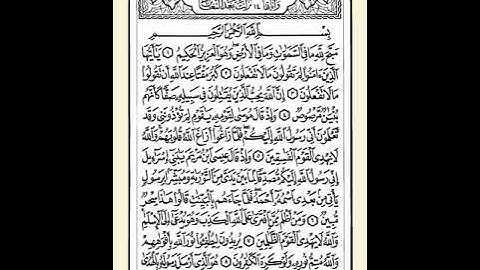 وآياتها ١٤ نزلت بعد التغابن
بِسْمِ ٱللَّهِ ٱلرَّحْمَٰنِ ٱلرَّحِيمِ
سَبَّحَ لِلَّهِ مَا فِي ٱلسَّمَٰوَٰتِ وَمَا فِي ٱلْأَرْضِ وَهُوَ ٱلْعَزِيزُ ٱلْحَكِيمُ ١ يَٰٓأَيُّهَا
ٱلَّذِينَ ءَامَنُوا۟ لِمَ تَقُولُونَ مَا لَا تَفْعَلُونَ ٢ كَبُرَ مَقْتًا عِندَ ٱللَّهِ أَن تَقُولُوا۟
مَا لَا تَفْعَلُونَ ٣ إِنَّ ٱللَّهَ يُحِبُّ ٱلَّذِينَ يُقَٰتِلُونَ فِي سَبِيلِهِۦ صَفًّا كَأَنَّهُم
بُنْيَٰنٌ مَّرْصُوصٌ ٤ وَإِذْ قَالَ مُوسَىٰ لِقَوْمِهِۦ يَٰقَوْمِ لِمَ تُؤْذُونَنِي وَقَد
تَّعْلَمُونَ أَنِّي رَسُولُ ٱللَّهِ إِلَيْكُمْ فَلَمَّا زَاغُوٓا۟ أَزَاغَ ٱللَّهُ قُلُوبَهُمْ وَٱللَّهُ
لَا يَهْدِي ٱلْقَوْمَ ٱلْفَٰسِقِينَ ٥ وَإِذْ قَالَ عِيسَى ٱبْنُ مَرْيَمَ يَٰبَنِيٓ إِسْرَٰٓءِيلَ
إِنِّي رَسُولُ ٱللَّهِ إِلَيْكُم مُّصَدِّقًا لِّمَا بَيْنَ يَدَيَّ مِنَ ٱلتَّوْرَىٰةِ وَمُبَشِّرًۢا بِرَسُولٍ
يَأْتِي مِنۢ بَعْدِي ٱسْمُهُۥٓ أَحْمَدُ فَلَمَّا جَآءَهُم بِٱلْبَيِّنَٰتِ قَالُوا۟ هَٰذَا سِحْرٌ
مُّبِينٌ ٦ وَمَنْ أَظْلَمُ مِمَّنِ ٱفْتَرَىٰ عَلَى ٱللَّهِ ٱلْكَذِبَ وَهُوَ يُدْعَىٰٓ إِلَى ٱلْإِسْلَٰمِ
وَٱللَّهُ لَا يَهْدِي ٱلْقَوْمَ ٱلظَّٰلِمِينَ ٧ يُرِيدُونَ لِيُطْفِـُٔوا۟ نُورَ ٱللَّهِ بِأَفْوَٰهِهِمْ
وَٱللَّهُ مُتِمُّ نُورِهِۦ وَلَوْ كَرِهَ ٱلْكَٰفِرُونَ ٨ هُوَ ٱلَّذِيٓ أَرْسَلَ رَسُولَهُۥ بِٱلْهُدَىٰ